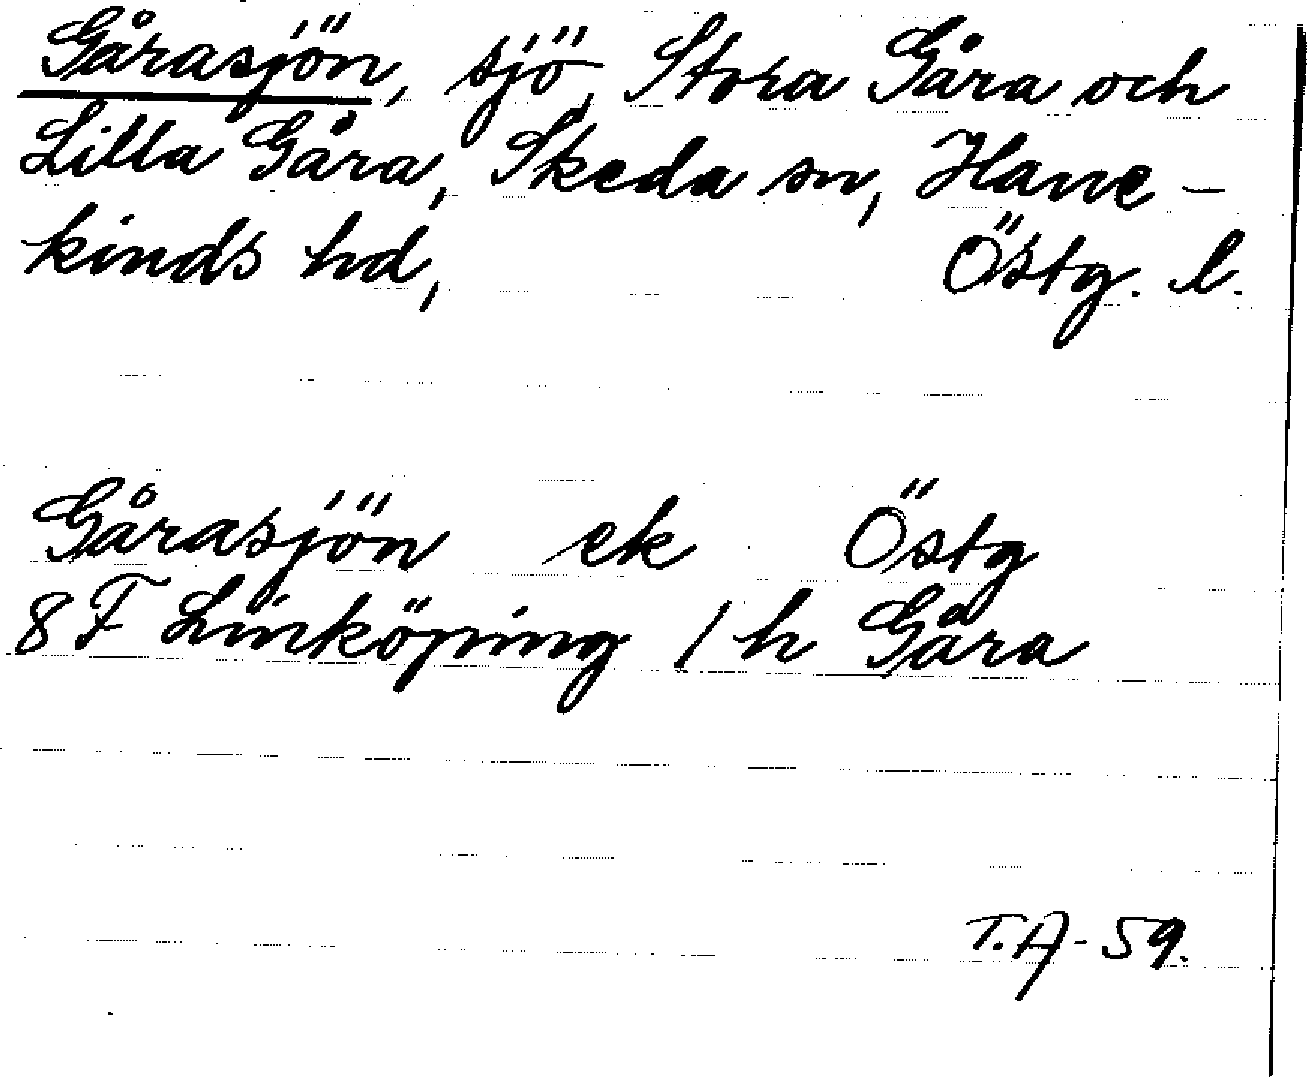 Gårasjön, sjö, Stora Gåra och
Lilla Gåra, Skeda sn, Hane-
kinds hd, Östg. l.
Gårasjön ek Östg
8 F Linköping 1 h Gåra
T.A-59.